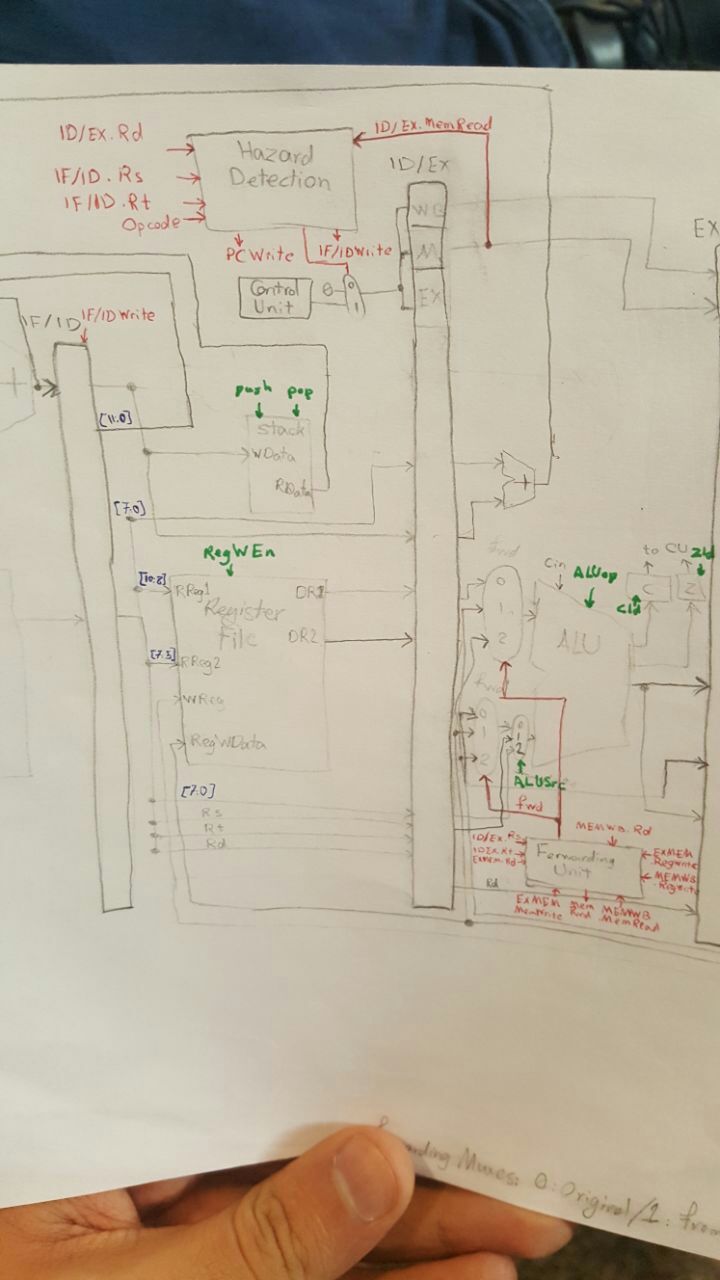 ID/Ex.Rd
IF/ID.Rs
IF/ID.Rt
Opcode
Hazard
Detection
ID/Ex.MemRead
PCWrite
IF/IDWrite
ID/Ex
WB
M
EX
EX
Control
Unit
0
0
1
IF/ID
IF/IDWrite
+
[11:0]
push
pop
Stack
WData
RData
[7:0]
+
RegWEn
RReg1
Register
File
DR1
DR2
[7:5]
RReg2
WReg
RegWData
[7:0]
Rs
Rt
Rd
fwd
0
1
2
Cin
ALUop
ALU
to CU
Zld
C
Z
Cld
fwd
0
1
2
0
1
2
ALUSrc
fwd
MEMWB.Rd
ID/Ex.Rs
IDEx.Rt
ExMem.Rd
Forwarding
Unit
ExMEM
Regwrite
MEMWB
Regwrite
Rd
ExMEM
MemWrite
Mem
Fwd
MEMWB
MemRead
Muxes: 0:Original/1: from